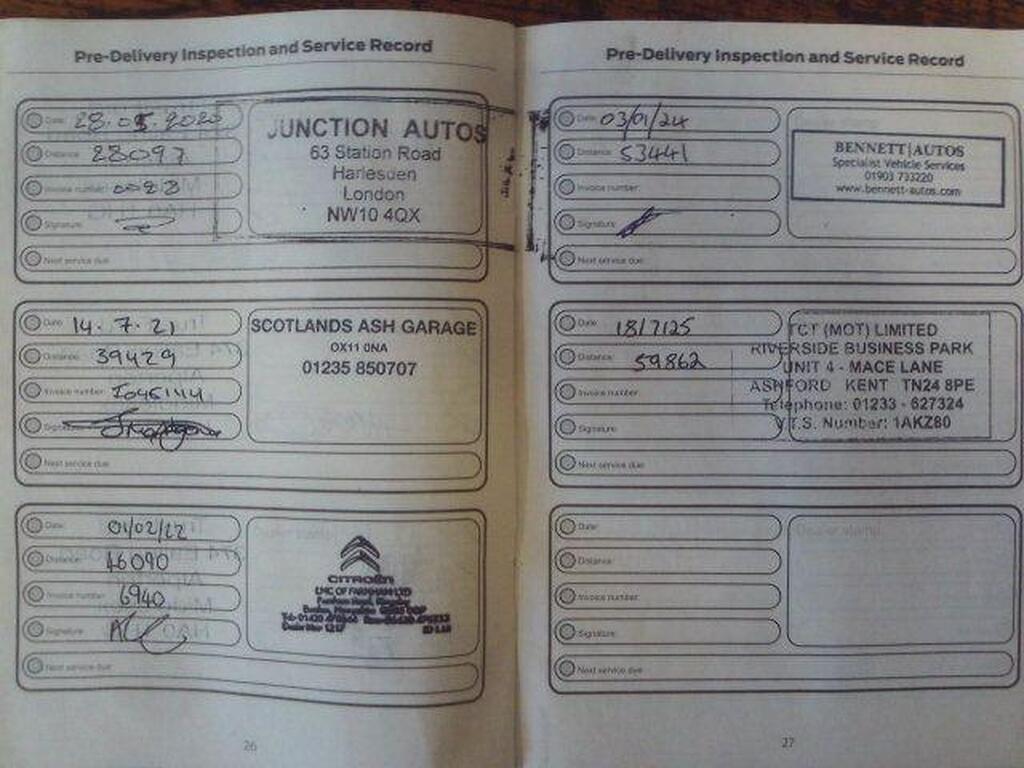 Pre-Delivery Inspection and Service Record
Date: 28.05.2020
Distance: 28097
Invoice number:
Signature:
Next service due:
JUNCTION AUTOS
63 Station Road
Harlesden
London
NW10 4QX
Date: 14.7.21
Distance: 39429
Invoice number:
Signature:
Next service due:
SCOTLANDS ASH GARAGE
OX11 0NA
01235 850707
Date: 01/02/22
Distance: 46090
Invoice number: 6940
Signature:
Next service due:
Dealer stamp
CITROËN
LMC OF FARNHAM LTD
26
Pre-Delivery Inspection and Service Record
Date: 03/01/24
Distance: 53441
Invoice number:
Signature:
Next service due:
Dealer stamp
BENNETT|AUTOS
Specialist Vehicle Services
01903 733220
www.bennett-autos.com
Date: 18/7/25
Distance: 59862
Invoice number:
Signature:
Next service due:
TCT (MOT) LIMITED
RIVERSIDE BUSINESS PARK
UNIT 4 - MACE LANE
ASHFORD KENT TN24 8PE
Telephone: 01233 - 627324
V.T.S. Number: 1AKZ80
Date:
Distance:
Invoice number:
Signature:
Next service due:
Dealer stamp
27